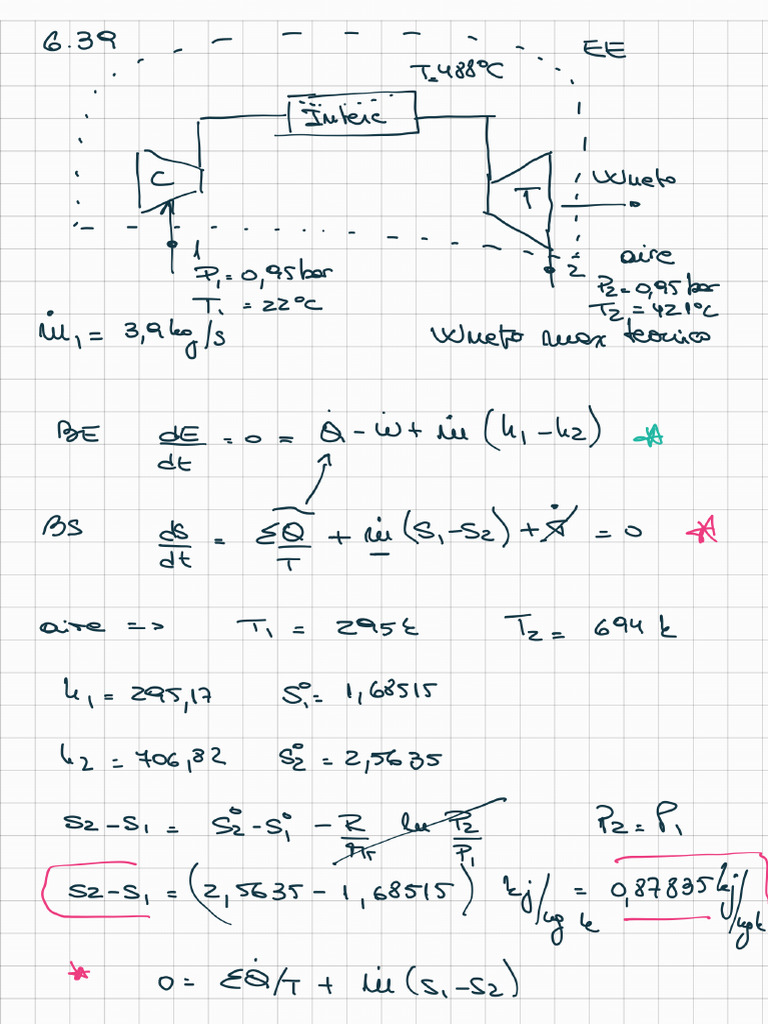 6.39
EE
T=488°C
Interc
C
T
Ẇneto
1
P₁ = 0,95 bar
T₁ = 22°C
2
aire
P₂ = 0,95 bar
T₂ = 421°C
ṁ₁ = 3,9 kg/s
Ẇneto max teorico
BE dE/dt = 0 = Q̇ - ẇ + ṁ (h₁ - h₂)
BS dS/dt = ΣQ̇/T + ṁ (S₁ - S₂) + σ̇ = 0
aire => T₁ = 295 k T₂ = 694 k
h₁ = 295,17 S₁° = 1,68515
h₂ = 706,82 S₂° = 2,5635
S₂ - S₁ = S₂° - S₁° - R/Mr ln P₂/P₁ P₂ = P₁
S₂ - S₁ = (2,5635 - 1,68515) kj/kg k = 0,87835 kj/kg k
0 = ΣQ̇/T + ṁ (S₁ - S₂)